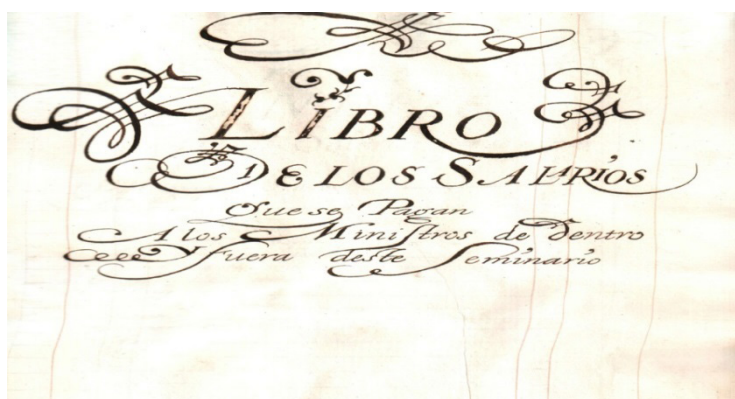 LIBRO
DE LOS SALARIOS
Que se Pagan
A los Ministros de Dentro
Y fuera deste Seminario